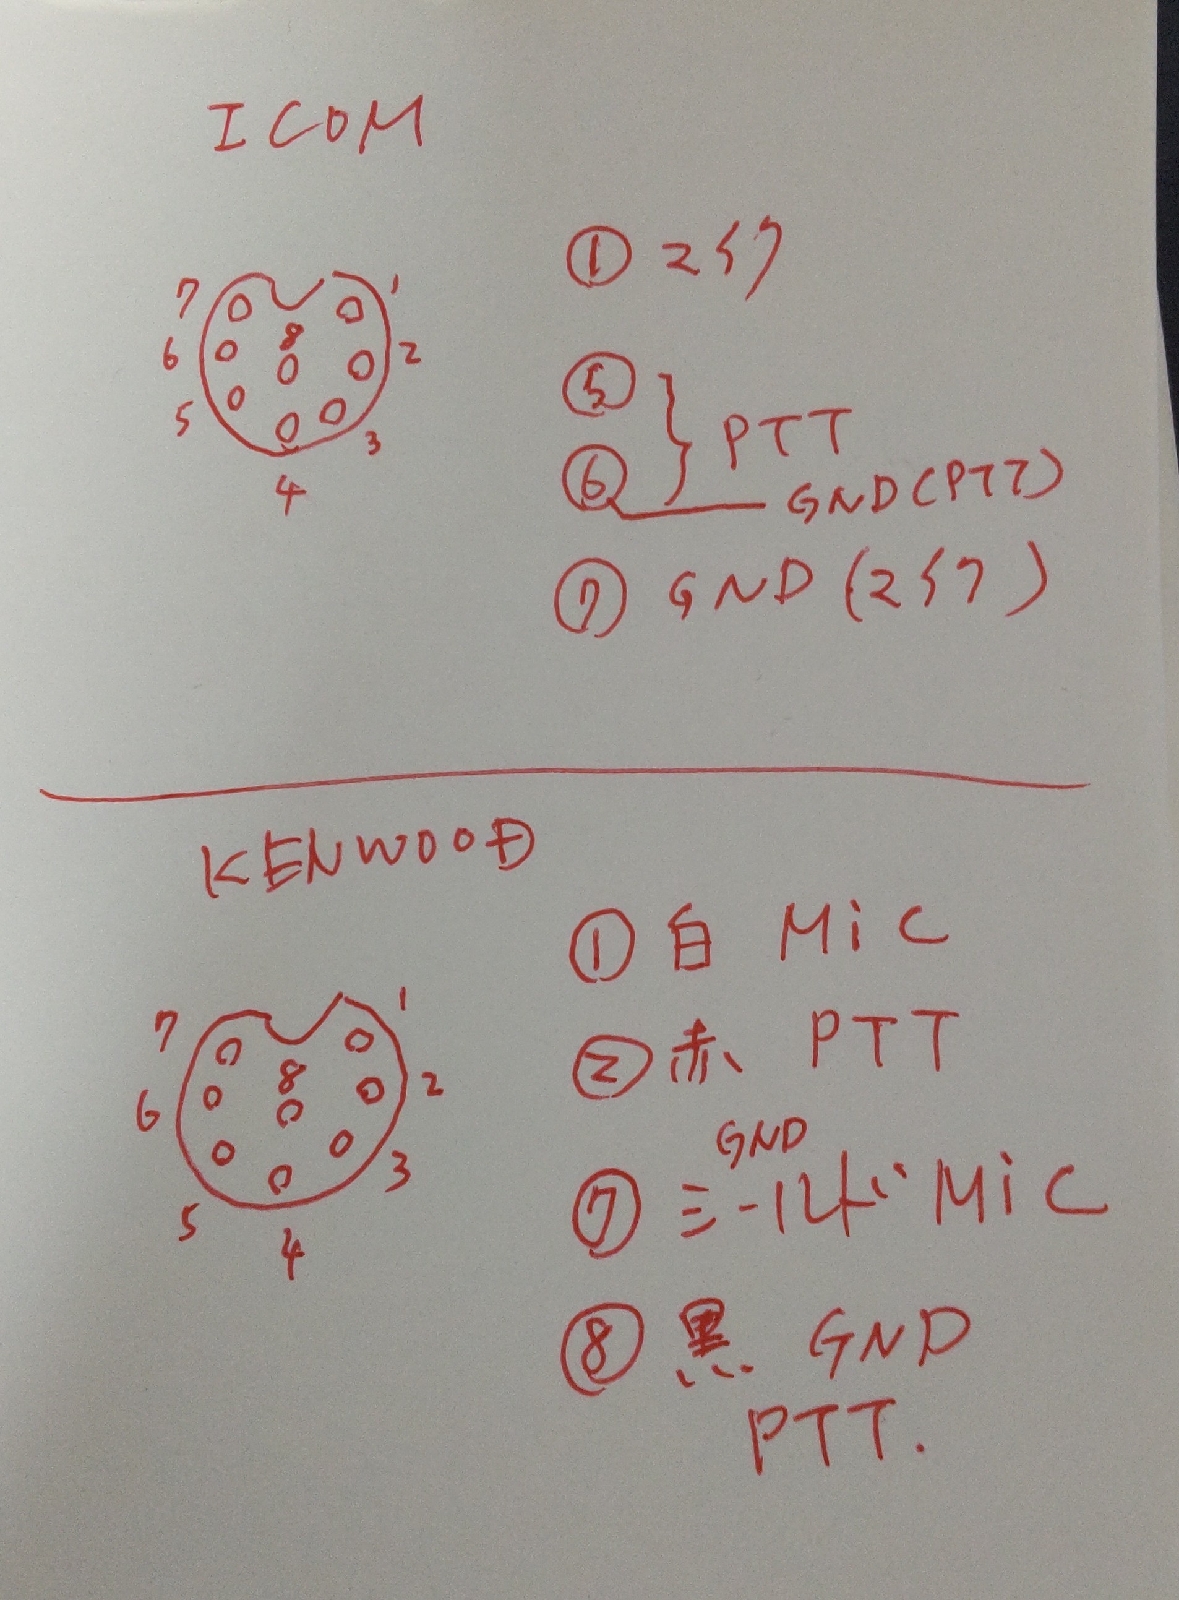 ICOM
7 1
8
6 2
5 3
4
① マイク
⑤
⑥ } PTT
GND(PTT)
⑦ GND (マイク)
KENWOOD
7 1
8
6 2
5 3
4
① 白 MiC
② 赤 PTT
GND
⑦ シールド MiC
⑧ 黒 GND
PTT.